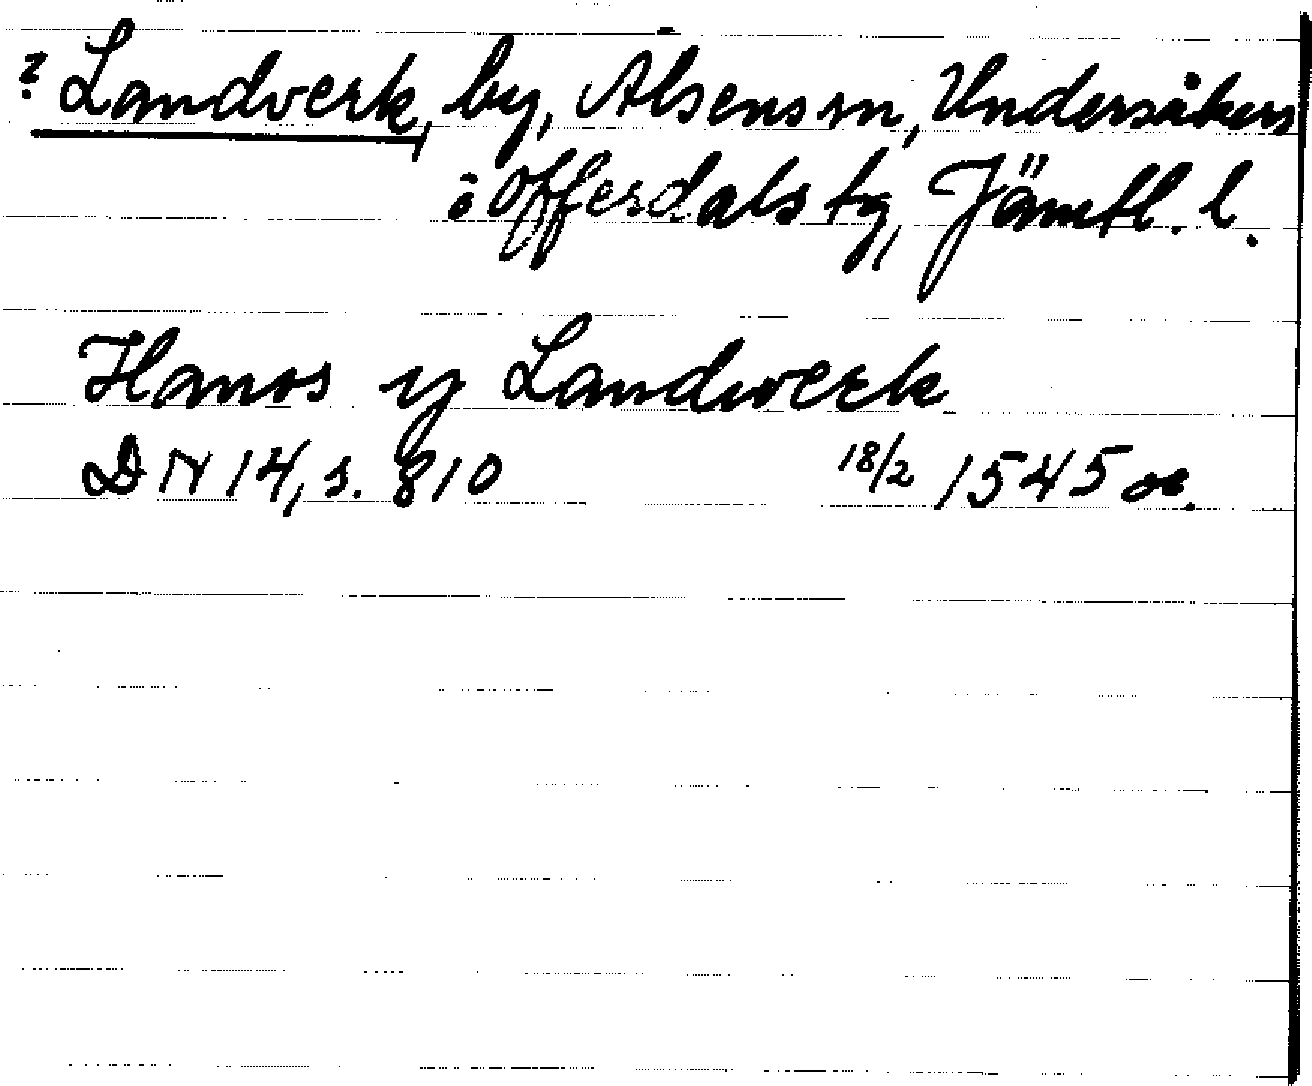 ? Landverk, by, Alsens sn, Undersåkers
o Offerdals tg, Jämtl. l.
Hanos y Landwerk
DN 14, s. 810 18/2 1545 or.